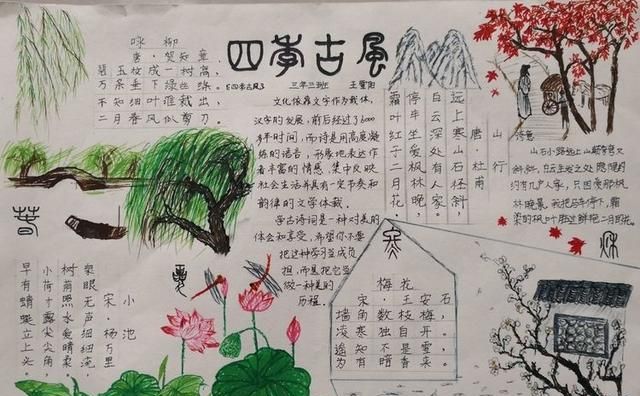 四季古风
《四季古风》 三年三班
咏柳
唐·贺知章
碧玉妆成一树高，
万条垂下绿丝绦。
不知细叶谁裁出，
二月春风似剪刀。
文化依靠文字作为载体，
汉字的发展，前后经过了6000
多年时间，而诗是用高度凝
练的语言，形象地表达作
者丰富的情感，集中反映
社会生活并具有一定节奏和
韵律的文学体裁。
学古诗词是一种对美的
体会和享受，希望你不要
把这种学习当成负
担，而是把它当
做一种美的
历程。
山行
唐·杜甫
远上寒山石径斜，
白云深处有人家。
停车坐爱枫林晚，
霜叶红于二月花。
诗意
山石小路远上山巅弯弯又
斜斜，白云生处之处隐隐约
约有几户人家，只因爱那枫
林晚景，我把马车停下，霜
染的枫叶胜过鲜艳二月的花。
春
夏
秋
寒
小池
宋·杨万里
泉眼无声细细流
树荫照水爱晴柔
小荷才露尖尖角，
早有蜻蜓立上头。
梅花
宋·王安石
墙角数枝梅，
凌寒独自开。
遥知不是雪，
为有暗香来。